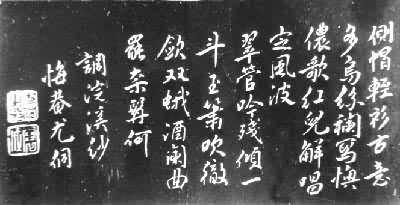 側帽輕衫古意
多烏絲襴寫懊
儂歌紅兒解唱
定風波
翠管吟殘傾一
斗玉簫吹徹
斂双蛾酒闌曲
罷奈何
調浣溪紗
悔菴尤侗